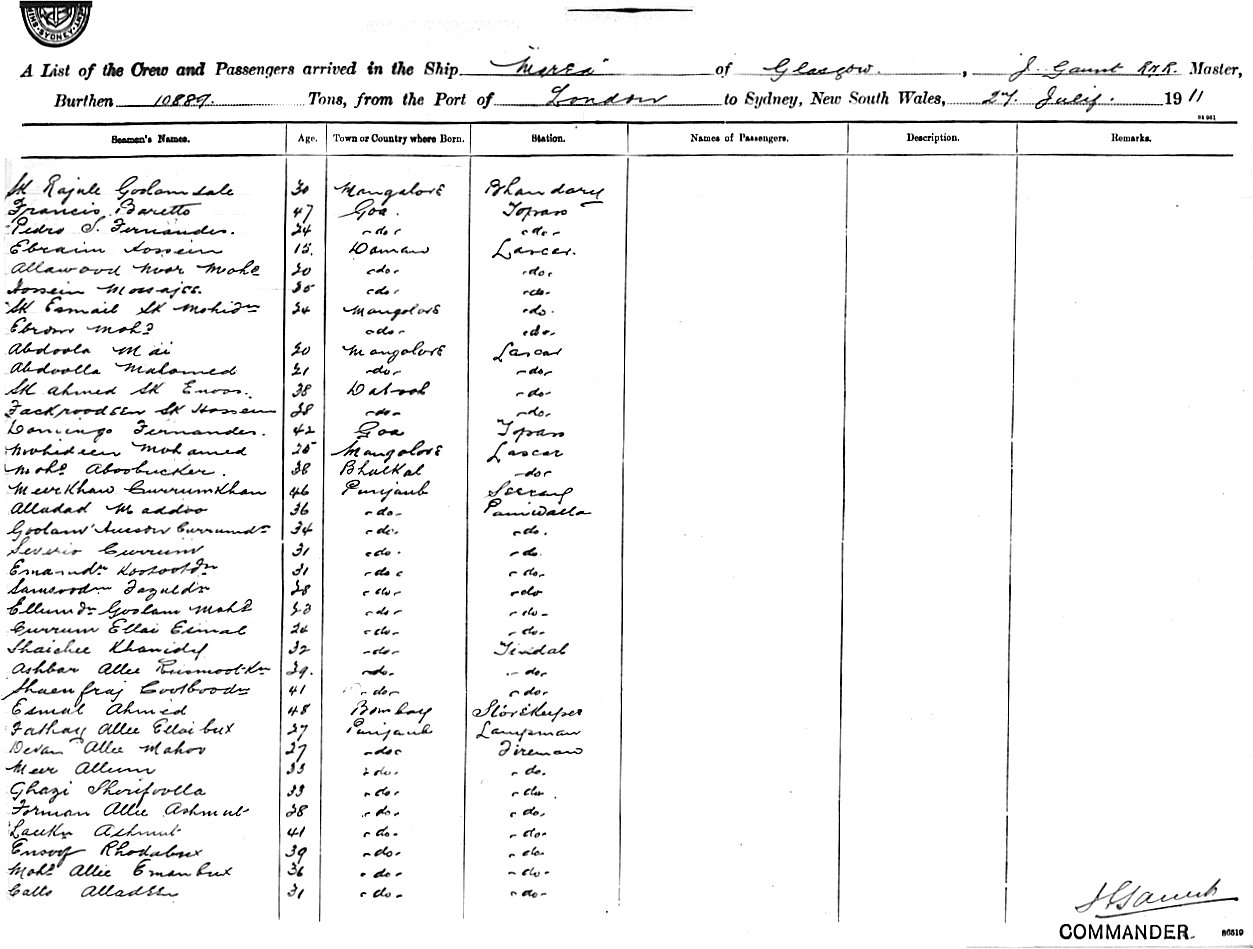 SHIPPING SYDNEY
A List of the Crew and Passengers arrived in the Ship "Morea" of Glasgow, J. Gaunt R.N.R. Master,
Burthen 10889. Tons, from the Port of London to Sydney, New South Wales, 27. July. 1911
Seamen's Names. Age. Town or Country where Born. Station. Names of Passengers. Description. Remarks.
Sk Rajale Goolamsale 30 Mangalore Bhandary
Francis Baretto 47 Goa. Topass
Pedro S. Fernandes. 24 -do- -do-
Ebraim Hossein 15. Daman Lascar.
Allawood Noor Mohd 20 -do- -do-
Hossein Mossajee. 25 -do- -do-
Sk Esmail Sk Mohidn 24 Mangalore -do-
Ebrom Mohd -do- -do-
Abdoola Mai 20 Mangalore Lascar
Abdoolla Mahomed 21 -do- -do-
Sk Ahmed Sk Enoos. 38 Dabool -do-
Fackroodeen Sk Hossein 28 -do- -do-
Domingo Fernandes. 42 Goa Topass
Moohideen Mohamed 25 Mangalore Lascar
Mohd Aboobucker. 38 Bhatkal -do-
Meerkhan Currumkhan 46 Punjaub Seerang
Alladad Maddoo 36 -do- Paniwalla
Goolam Husson Currumdn 34 -do- -do-
Currum 31 -do- -do-
Emamdn 31 -do- -do-
Samsoodn Fazuldn 28 -do- -do-
Ellumdn Goolam Mohd 23 -do- -do-
Currum Ellai Esmal 24 -do- -do-
32 -do- Tindal
Ashbar Allee 39. -do- -do-
Cootboodn 41 -do- -do-
Esmal Ahmed 48 Bombay Storekeeper
Fathay Allee Ellaibux 27 Punjaub Lampman
Devan Allee Mahov 27 -do- Fireman
Meer Allum 33 -do- -do-
Ghazi Sherifoolla 33 -do- -do-
Forman Allee Ashmut 28 -do- -do-
Ashmut 41 -do- -do-
Ensoof Rhodabux 39 -do- -do-
Mohd Allee Emanbux 36 -do- -do-
Calls Alladeen 31 -do- -do-
J Gaunt
COMMANDER.